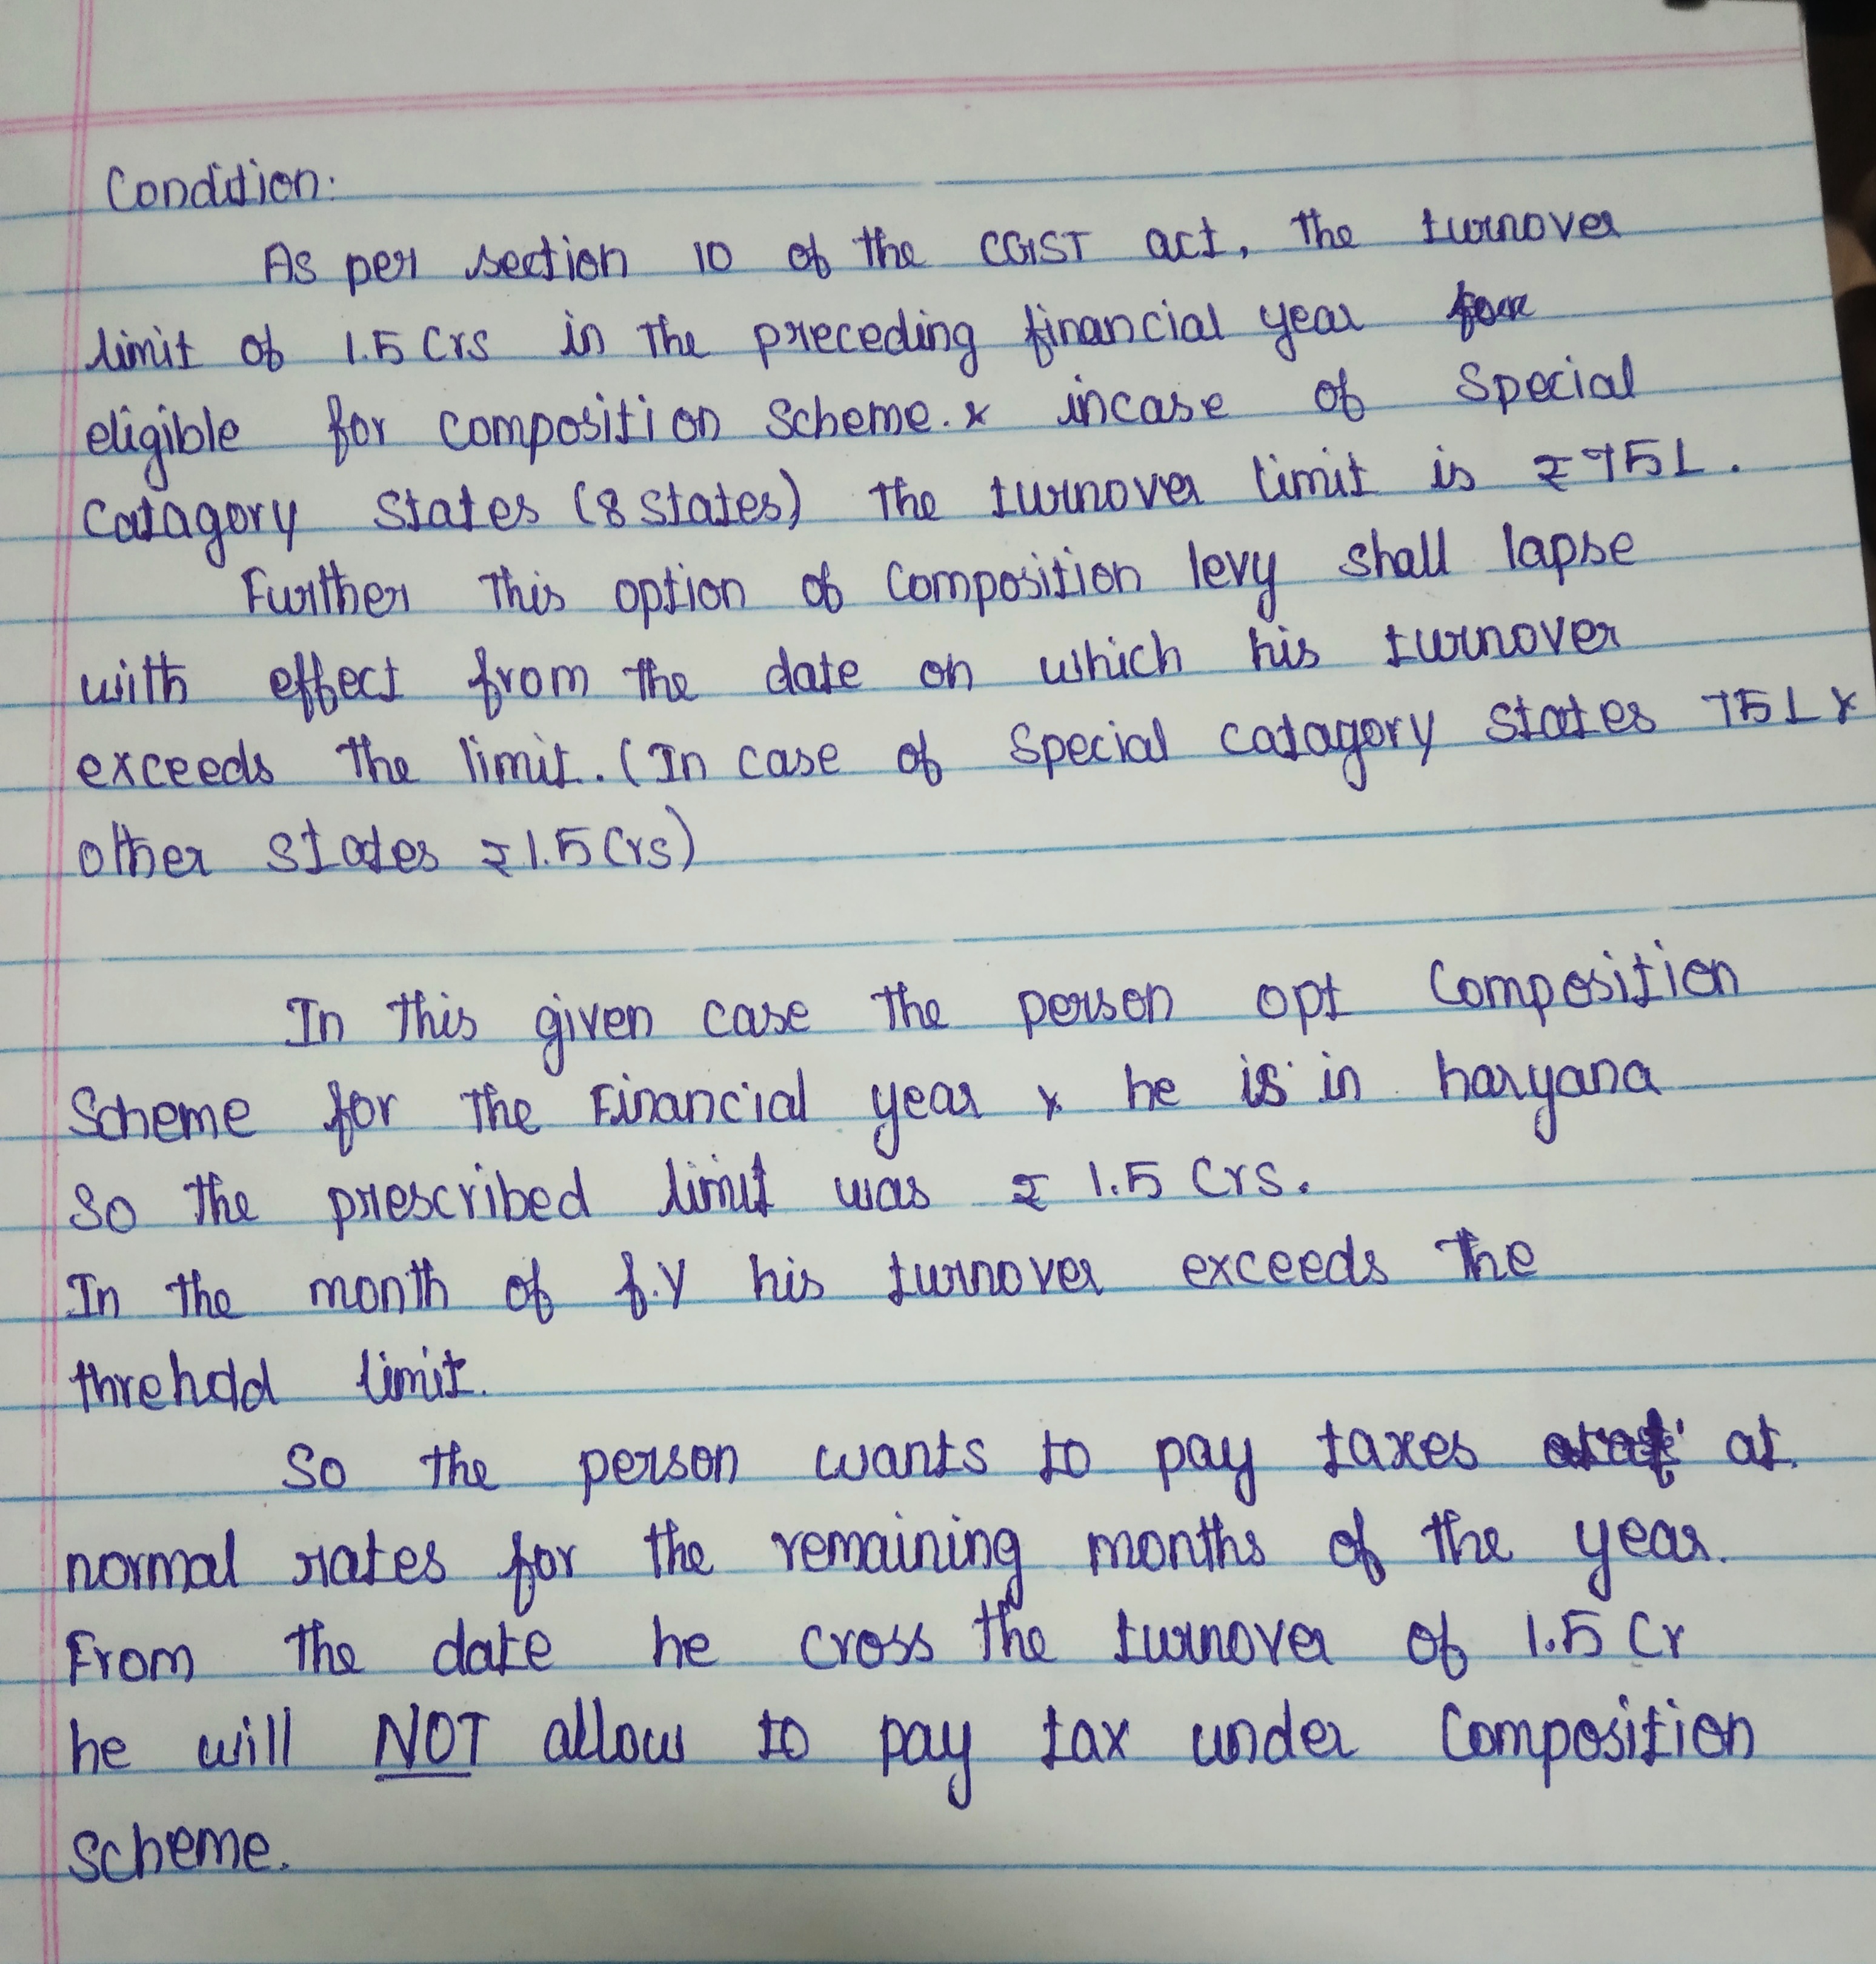 Condition:
As per section 10 of the CGST act, the turnover
limit of 1.5 Crs in the preceding financial year for
eligible for composition scheme. & incase of special
catagory states (8 states) the turnover limit is ₹75L.
Further this option of composition levy shall lapse
with effect from the date on which his turnover
exceeds the limit. (In case of special catagory states 75L &
other states ₹1.5 Crs)
In this given case the person opt composition
scheme for the Financial year & he is in haryana
so the prescribed limit was ₹ 1.5 Crs.
In the month of f.y his turnover exceeds the
threhold limit.
So the person wants to pay taxes at
normal rates for the remaining months of the year.
From the date he cross the turnover of 1.5 Cr
he will NOT allow to pay tax under composition
scheme.